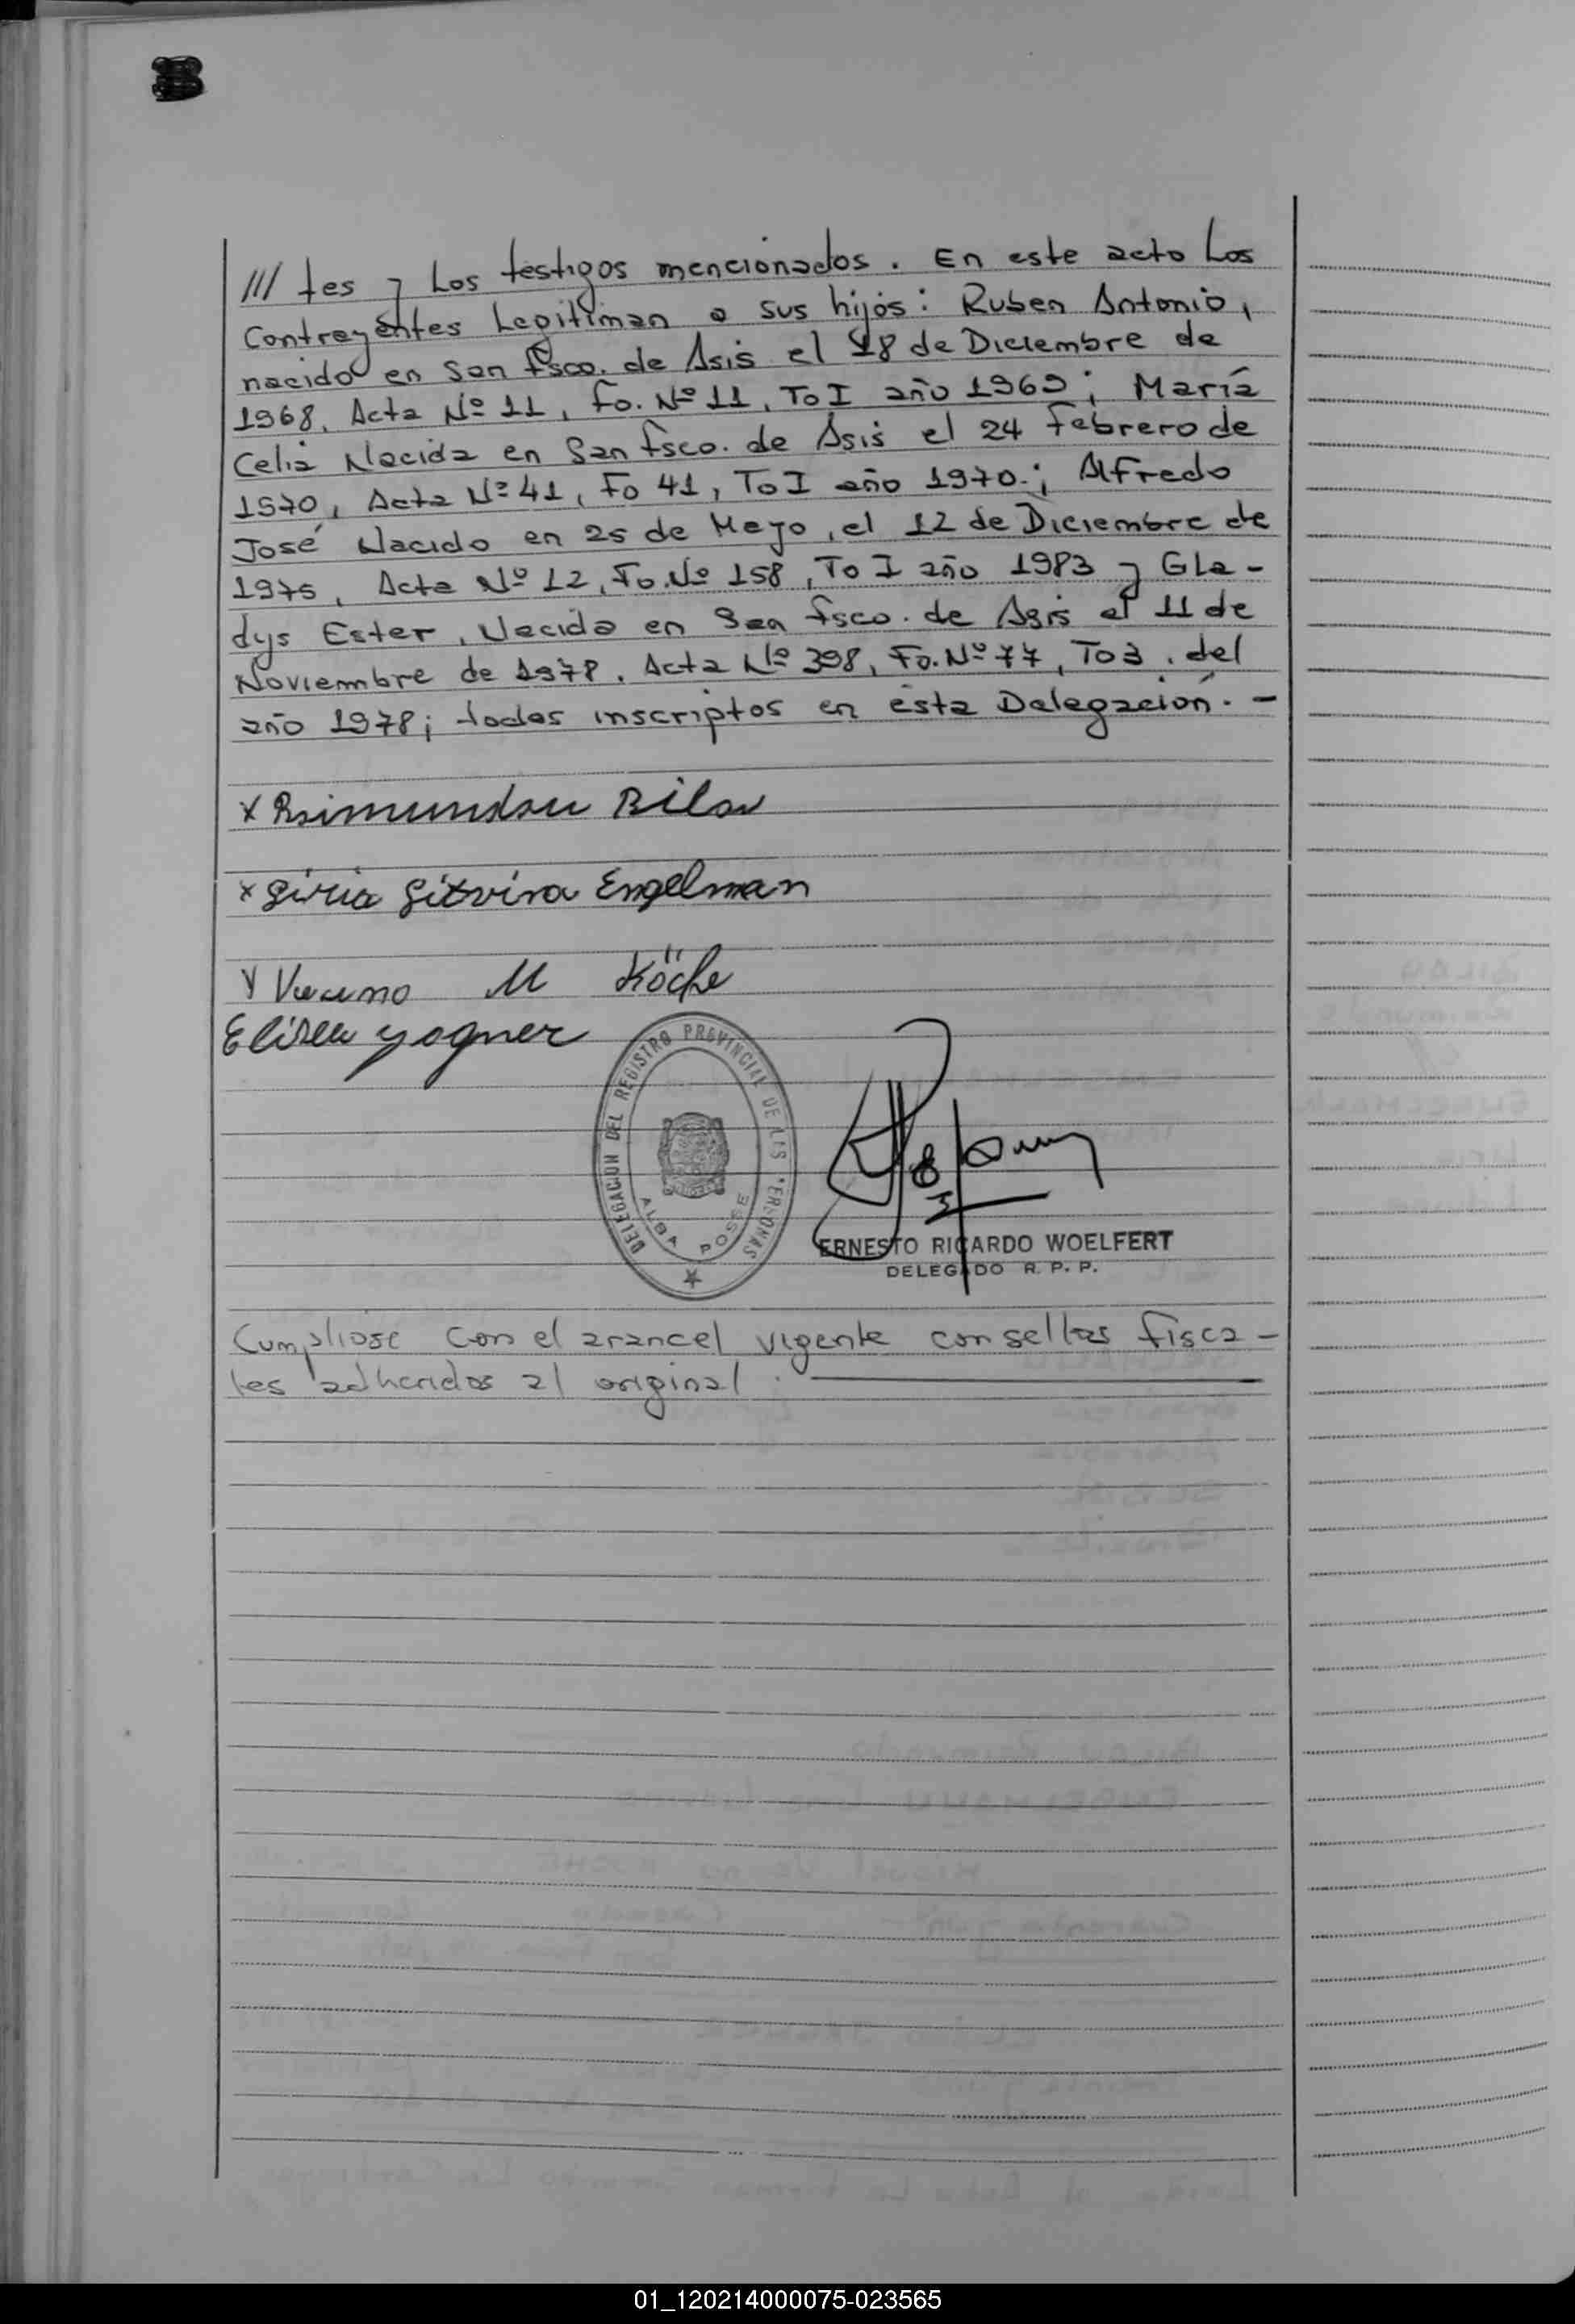 /// tes y los testigos mencionados. En este acto los
contrayentes Legitiman a sus hijos: Ruben Antonio,
nacido en San fsco. de Asis el 18 de Diciembre de
1968, Acta Nº 11, Fo. Nº 11, To I año 1969; María
Celia Nacida en San fsco. de Asis el 24 febrero de
1970, Acta Nº 41, Fo 41, To I año 1970.; Alfredo
José Nacido en 25 de Mayo, el 12 de Diciembre de
1975, Acta Nº 12, Fo. Nº 158, To I año 1983 y Gla-
dys Ester, Nacida en San fsco. de Asis el 11 de
Noviembre de 1978. Acta Nº 398, Fo. Nº 77, To 3. del
año 1978; todos inscriptos en esta Delegación. -
x Raimundou Bilau
x Engelman
M Köche
DELEGACION DEL REGISTRO PROVINCIAL DE LAS PERSONAS
ALBA POSSE
ERNESTO RICARDO WOELFERT
DELEGADO R. P. P.
Cumpliose con el arancel vigente con sellos fisca-
les adheridos al original.
01_120214000075-023565